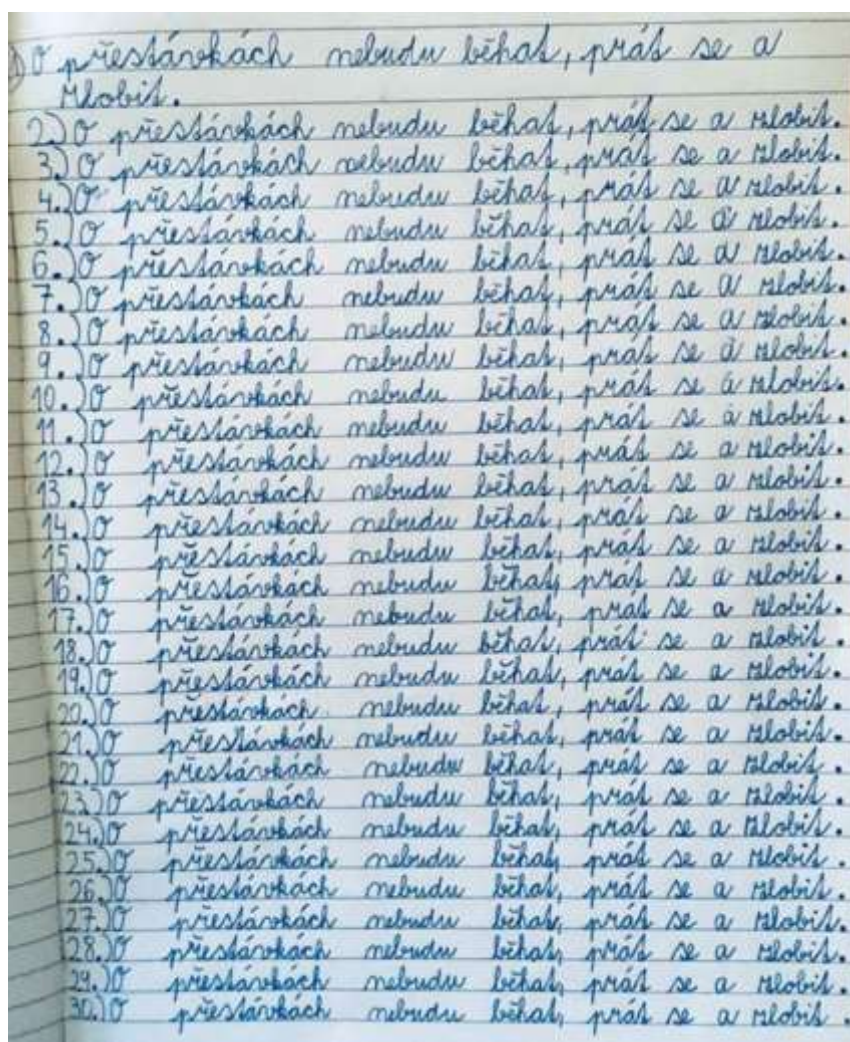 1) O přestávkách nebudu běhat, prát se a
zlobit.
2.) O přestávkách nebudu běhat, prát se a zlobit.
3.) O přestávkách nebudu běhat, prát se a zlobit.
4.) O přestávkách nebudu běhat, prát se a zlobit.
5.) O přestávkách nebudu běhat, prát se a zlobit.
6.) O přestávkách nebudu běhat, prát se a zlobit.
7.) O přestávkách nebudu běhat, prát se a zlobit.
8.) O přestávkách nebudu běhat, prát se a zlobit.
9.) O přestávkách nebudu běhat, prát se a zlobit.
10.) O přestávkách nebudu běhat, prát se a zlobit.
11.) O přestávkách nebudu běhat, prát se a zlobit.
12.) O přestávkách nebudu běhat, prát se a zlobit.
13.) O přestávkách nebudu běhat, prát se a zlobit.
14.) O přestávkách nebudu běhat, prát se a zlobit.
15.) O přestávkách nebudu běhat, prát se a zlobit.
16.) O přestávkách nebudu běhat, prát se a zlobit.
17.) O přestávkách nebudu běhat, prát se a zlobit.
18.) O přestávkách nebudu běhat, prát se a zlobit.
19.) O přestávkách nebudu běhat, prát se a zlobit.
20.) O přestávkách nebudu běhat, prát se a zlobit.
21.) O přestávkách nebudu běhat, prát se a zlobit.
22.) O přestávkách nebudu běhat, prát se a zlobit.
23.) O přestávkách nebudu běhat, prát se a zlobit.
24.) O přestávkách nebudu běhat, prát se a zlobit.
25.) O přestávkách nebudu běhat, prát se a zlobit.
26.) O přestávkách nebudu běhat, prát se a zlobit.
27.) O přestávkách nebudu běhat, prát se a zlobit.
28.) O přestávkách nebudu běhat, prát se a zlobit.
29.) O přestávkách nebudu běhat, prát se a zlobit.
30.) O přestávkách nebudu běhat, prát se a zlobit.